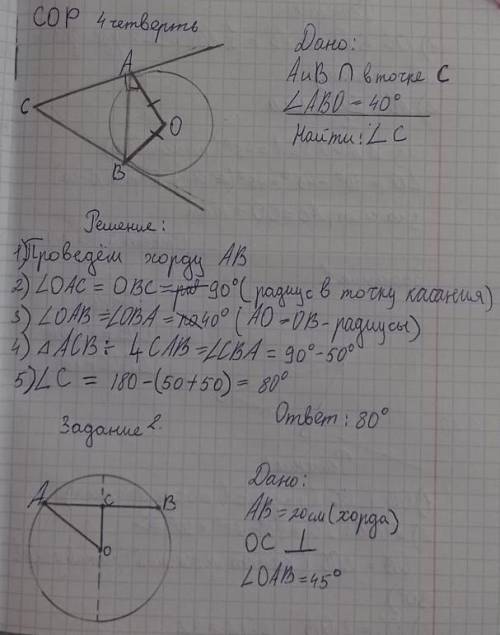 СОР 4 четверть
Дано:
А и В ∩ в точке С
∠ABO = 40°
Найти: ∠C
A
C
O
B
Решение:
1) Проведём хорду АВ
2) ∠OAC = OBC = 90° (радиус в точку касания)
3) ∠OAB = ∠OBA = 40° (AO = OB - радиусы)
4) △ACB: ∠CAB = ∠CBA = 90° - 50°
5) ∠C = 180 - (50 + 50) = 80°
Ответ: 80°
Задание 2.
A
C
B
O
Дано:
AB = 20см (хорда)
OC ⊥
∠OAB = 45°